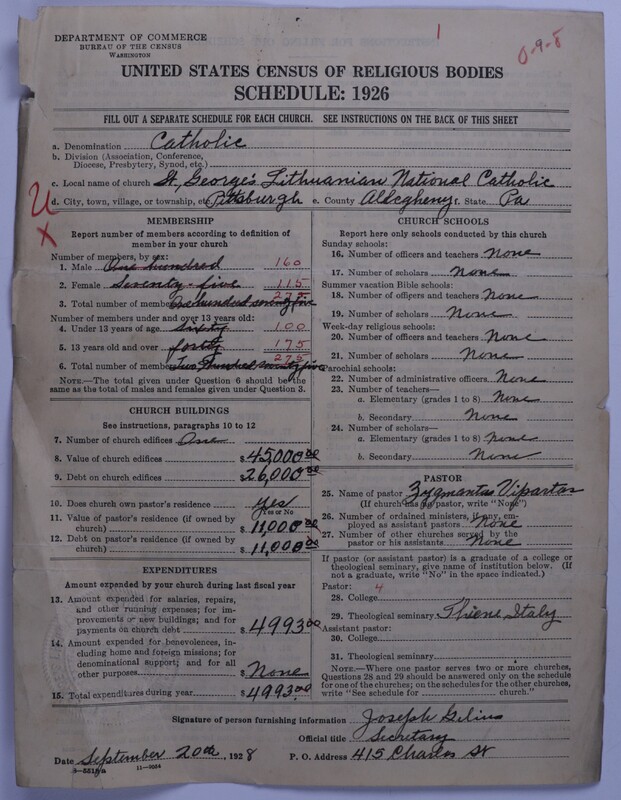 1
0-9-8
DEPARTMENT OF COMMERCE
BUREAU OF THE CENSUS
WASHINGTON
UNITED STATES CENSUS OF RELIGIOUS BODIES
SCHEDULE: 1926
FILL OUT A SEPARATE SCHEDULE FOR EACH CHURCH. SEE INSTRUCTIONS ON THE BACK OF THIS SHEET
a. Denomination Catholic
b. Division (Association, Conference,
Diocese, Presbytery, Synod, etc.)
c. Local name of church St, George's Lithuanian National Catholic
d. City, town, village, or township, etc. Pittsburgh e. County Allegheny f. State Pa
X
MEMBERSHIP
Report number of members according to definition of
member in your church
Number of members, by sex:
1. Male One hundred 160
2. Female Seventy-five 115
3. Total number of members One hundred seventy five 275
Number of members under and over 13 years old:
4. Under 13 years of age sixty 100
5. 13 years old and over forty 175
6. Total number of members Two Hundred seventy five 275
NOTE.—The total given under Question 6 should be the
same as the total of males and females given under Question 3.
CHURCH BUILDINGS
See instructions, paragraphs 10 to 12
7. Number of church edifices One
8. Value of church edifices $45,000.00
9. Debt on church edifices $26,000.00
10. Does church own pastor's residence? yes
Yes or No
11. Value of pastor's residence (if owned by
church) $11,000.00
12. Debt on pastor's residence (if owned by
church) $11,000.00
EXPENDITURES
Amount expended by your church during last fiscal year
13. Amount expended for salaries, repairs,
and other running expenses; for im-
provements or new buildings; and for
payments on church debt $4993.00
14. Amount expended for benevolences, in-
cluding home and foreign missions; for
denominational support; and for all
other purposes $None
15. Total expenditures during year $4993.00
CHURCH SCHOOLS
Report here only schools conducted by this church
Sunday schools:
16. Number of officers and teachers None
17. Number of scholars None
Summer vacation Bible schools:
18. Number of officers and teachers None
19. Number of scholars None
Week-day religious schools:
20. Number of officers and teachers None
21. Number of scholars None
Parochial schools:
22. Number of administrative officers None
23. Number of teachers—
a. Elementary (grades 1 to 8) None
b. Secondary None
24. Number of scholars—
a. Elementary (grades 1 to 8) None
b. Secondary None
PASTOR
25. Name of pastor Zygmantas Vipartas
(If church has no pastor, write "None")
26. Number of ordained ministers, if any, em-
ployed as assistant pastors None
27. Number of other churches served by the
pastor or his assistants None
If pastor (or assistant pastor) is a graduate of a college or
theological seminary, give name of institution below. (If
not a graduate, write "No" in the space indicated.)
Pastor: 4
28. College
29. Theological seminary Thiene Italy
Assistant pastor:
30. College
31. Theological seminary
NOTE.—Where one pastor serves two or more churches,
Questions 28 and 29 should be answered only on the schedule
for one of the churches; on the schedules for the other churches,
write "See schedule for church."
Signature of person furnishing information Joseph Gilius
Official title Secretary
Date September 20th, 1928 P. O. Address 415 Charles St
8—551a 11—9084